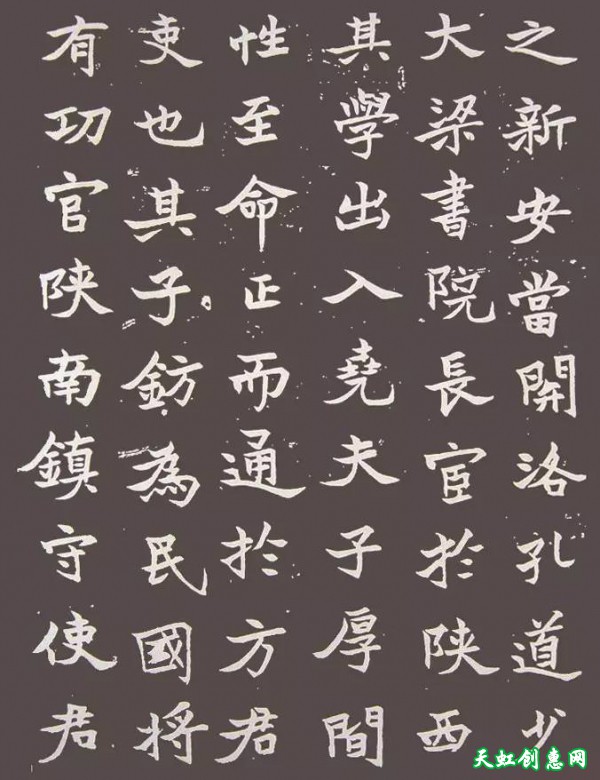 之新安當開洛孔道少
大梁書院長宦於陝西
其學出入堯夫子厚間
性至命正而通於方君
吏也其子鈁為民國將
有功官陝南鎮守使君
天虹创惠网